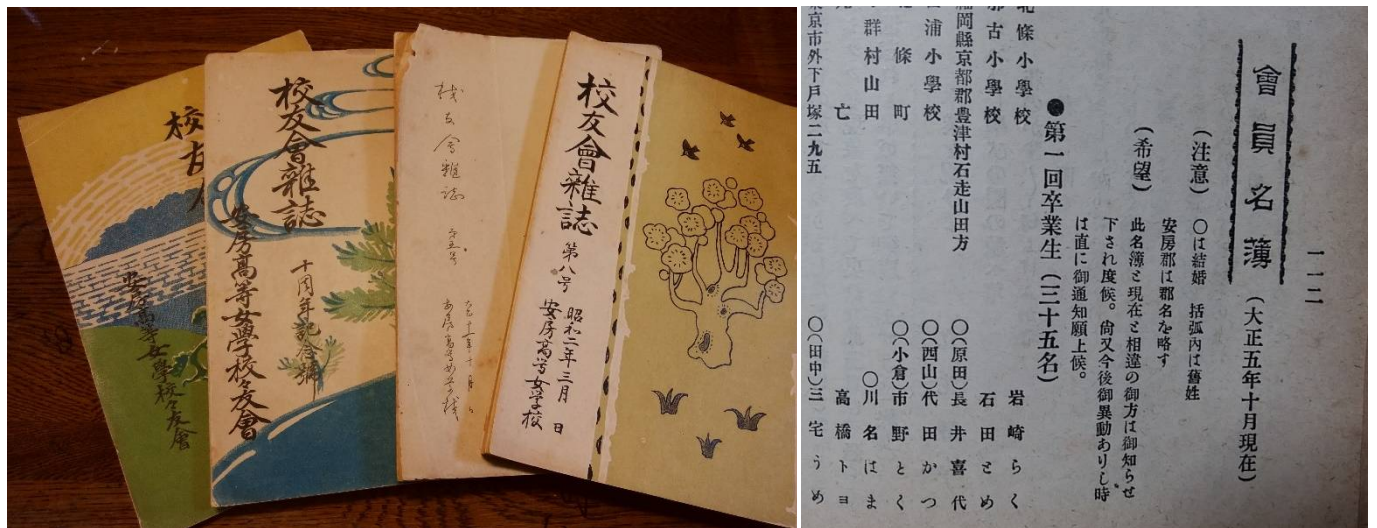 校友
安房高等女學校々友會
校友會雜誌
十周年記念號
安房高等女學校々友會
校友會雜誌
第五号
校友會雜誌
第八号
昭和二年三月 日
安房高等女学校
一一二
會員名簿(大正五年十月現在)
(注意) 〇は結婚 括弧內は舊姓
安房郡は郡名を略す
(希望) 此名簿と現在と相違の御方は御知らせ
下され度候。尙又今後御異動ありし時
は直に御通知願上候。
●第一回卒業生(三十五名)
北條小學校 岩崎らく
那古小學校 石田とめ
福岡縣京都郡豊津村石走山田方 〇(原田)長井喜代
浦小學校 〇(西山)代田かつ
條町 〇(小倉)市野とく
群村山田 〇川名はま
亡 高橋トヨ
東京市外下戸塚二九五 〇(田中)三宅うめ